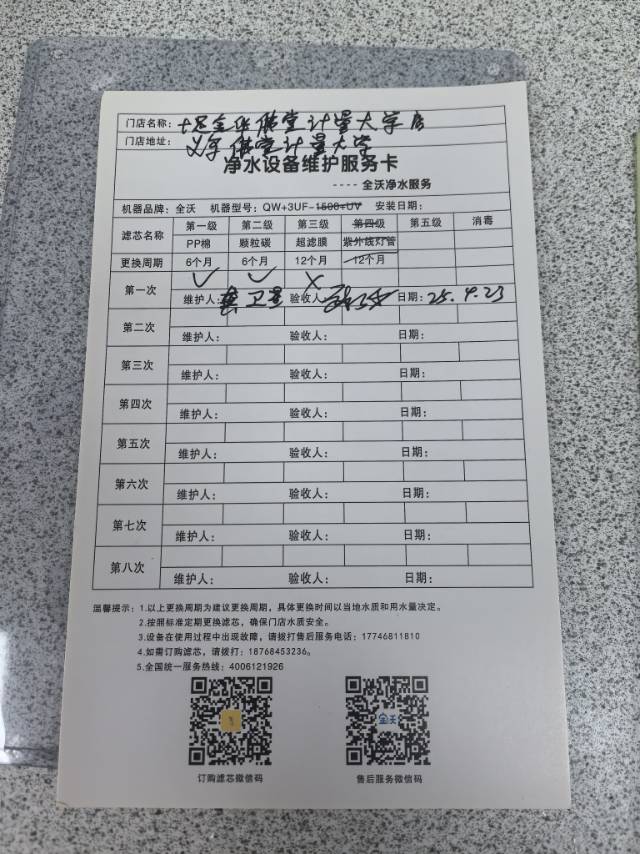 门店名称：计量大学店
门店地址：义乌计量大学
净水设备维护服务卡
---- 全沃净水服务
机器品牌：全沃 机器型号：QW+3UF-1500+UV 安装日期：
滤芯名称 第一级 第二级 第三级 第四级 第五级 消毒
PP棉 颗粒碳 超滤膜 紫外线灯管
更换周期 6个月 6个月 12个月 12个月
第一次 ✓ ✓ ✗
维护人：卫星 验收人 日期：25.4.23
第二次
维护人： 验收人： 日期：
第三次
维护人： 验收人： 日期：
第四次
维护人： 验收人： 日期：
第五次
维护人： 验收人： 日期：
第六次
维护人： 验收人： 日期：
第七次
维护人： 验收人： 日期：
第八次
维护人： 验收人： 日期：
温馨提示：1.以上更换周期为建议更换周期，具体更换时间以当地水质和用水量决定。
2.按照标准定期更换滤芯，确保门店水质安全。
3.设备在使用过程中出现故障，请拨打售后服务电话：17746811810
4.如需订购滤芯，请拨打：18768453236。
5.全国统一服务热线：4006121926
全沃
订购滤芯微信码 售后服务微信码